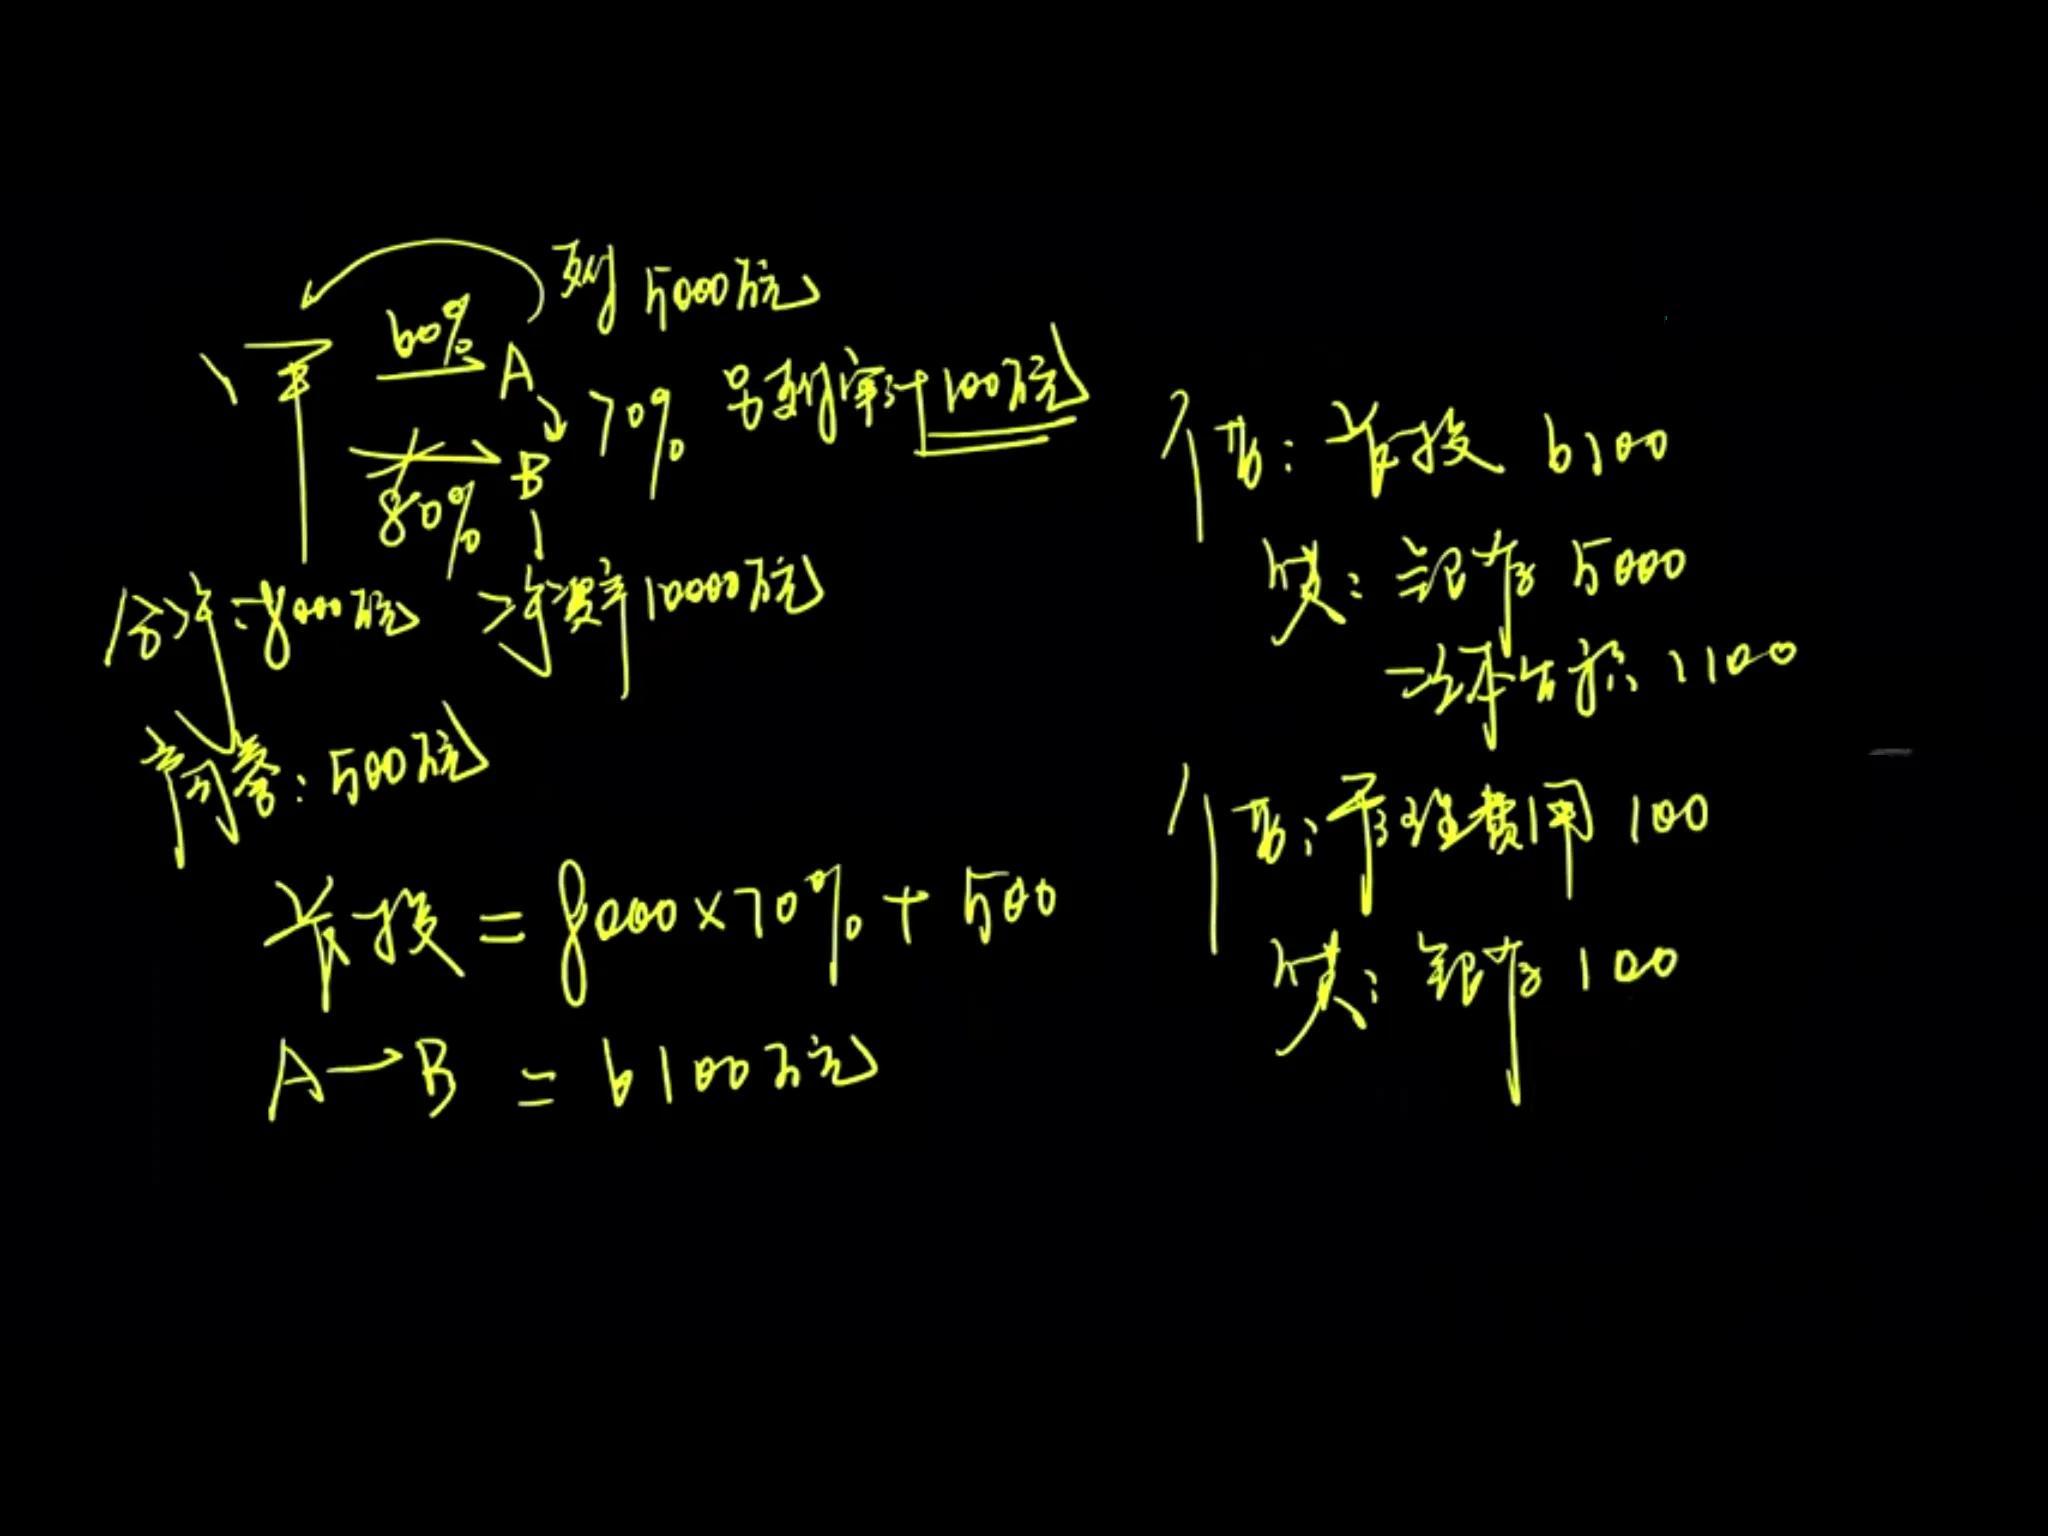 到 5000万元
1、甲 60% A
70% 另到审计100万元
80% B
公净:8000万元 净资产10000万元
商誉:500万元
长投 = 8000×70% + 500
A→B = 6100万元
借:长投 6100
贷:银存 5000
资本公积 1100
借:管理费用 100
贷:银存 100